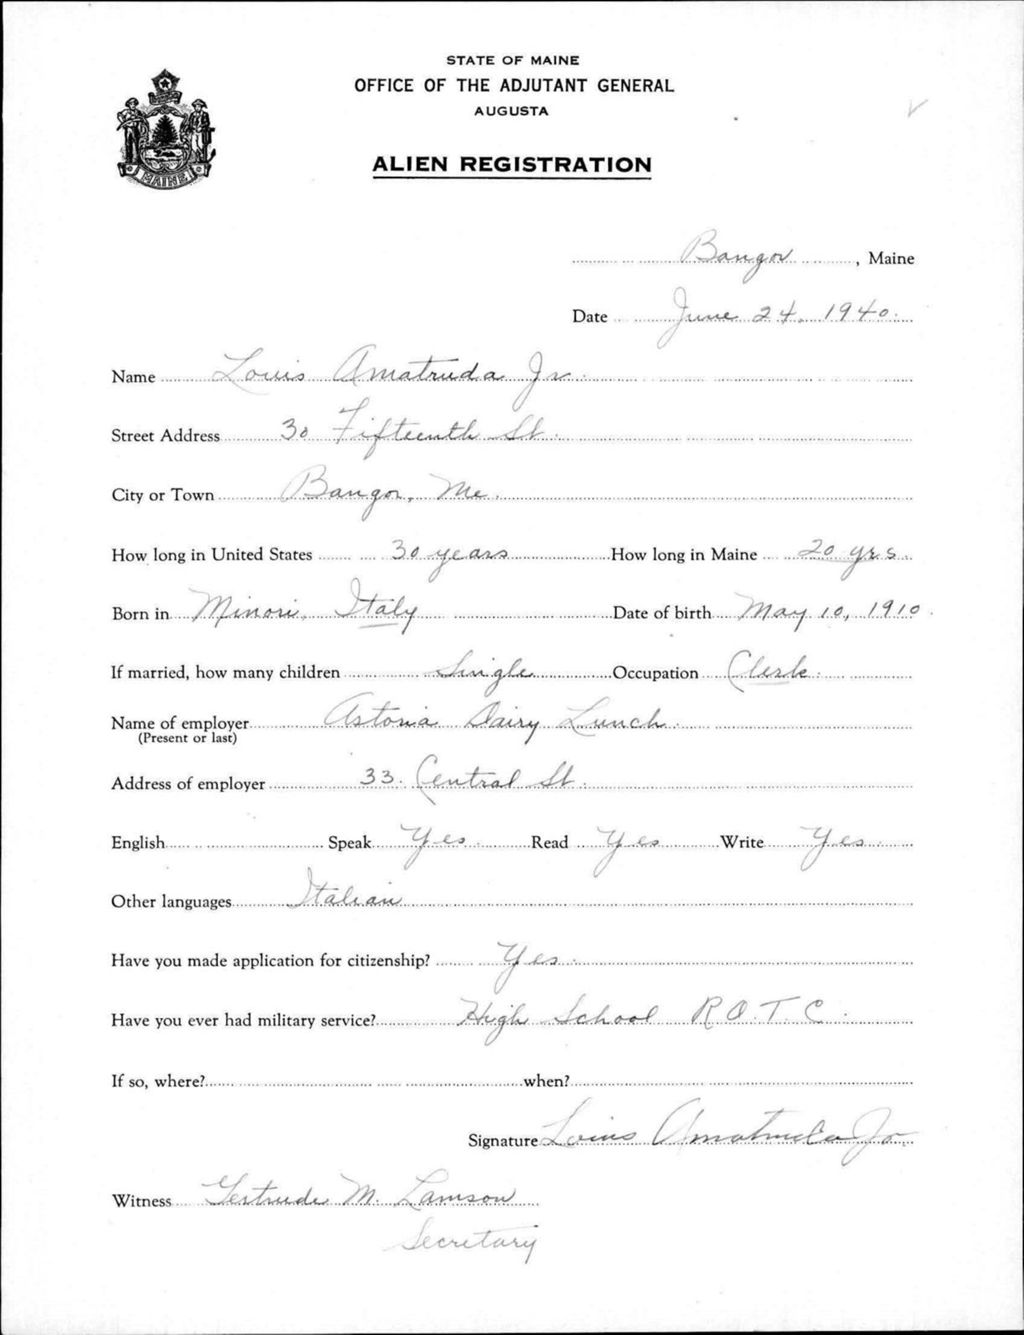 STATE OF MAINE
OFFICE OF THE ADJUTANT GENERAL
AUGUSTA
ALIEN REGISTRATION
MAINE
Bangor, Maine
Date June 24, 1940.
Name Louis Amatruda Jr.
Street Address 30 Fifteenth St.
City or Town Bangor, Me.
How long in United States 30 years How long in Maine 20 yrs.
Born in Minori, Italy Date of birth May 10, 1910.
If married, how many children Single Occupation Clerk.
Name of employer Astoria Dairy Lunch.
(Present or last)
Address of employer 33. Central St.
English Speak Yes. Read Yes Write Yes.
Other languages Italian
Have you made application for citizenship? Yes.
Have you ever had military service? High School R.O.T.C.
If so, where? when?
Signature Louis Amatruda Jr.
Witness Gertrude M. Lamson
Secretary